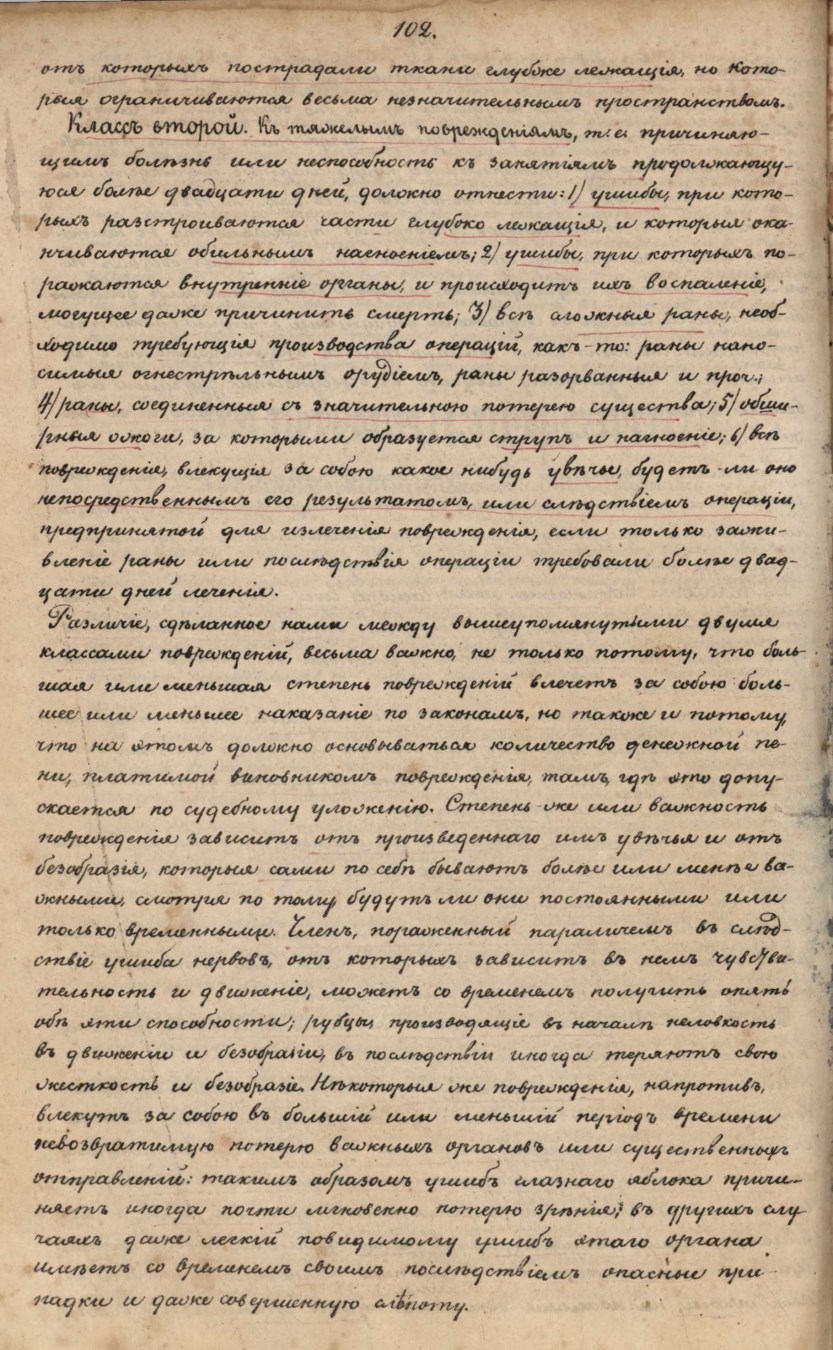 102.
отъ которыхъ пострадали ткани глубже лежащія, но кото-
рыя ограничиваются весьма незначительнымъ пространствомъ.
Классъ второй. Къ тяжелымъ поврежденіямъ, т. е. причиняю-
щимъ болѣзнь или неспособность къ занятіямъ продолжающу-
юся болѣе двадцати дней, должно отнести: 1) ушибы, при кото-
рыхъ разстроиваются части глубоко лежащія, и которыя ока-
нчиваются обильнымъ нагноеніемъ; 2) ушибы, при которыхъ по-
ражаются внутренніе органы, и происходитъ ихъ воспаленіе,
могущее даже причинить смерть; 3) всѣ сложныя раны, необ-
ходимо требующія производства операцій, какъ-то: раны нано-
симыя огнестрѣльнымъ орудіемъ, раны разорванныя и проч.;
4) раны, соединенныя съ значительною потерею существа; 5) обши-
рныя ожоги, за которыми образуется струпъ и нагноеніе; 6) всѣ
поврежденія, влекущія за собою какое нибудь увѣчье, будетъ-ли оно
непосредственнымъ его результатомъ, или слѣдствіемъ операціи,
предпринятой для излеченія поврежденія, если только зажи-
вленіе раны или послѣдствія операціи требовали болѣе двад-
цати дней леченія.
Различіе, сдѣланное нами между вышеупомянутыми двумя
классами поврежденій, весьма важно, не только потому, что боль-
шая или меньшая степень поврежденій влечетъ за собою боль-
шее или меньшее наказаніе по законамъ, но также и потому,
что на этомъ должно основываться количество денежной пе-
ни, платимой виновникомъ поврежденія, тамъ, гдѣ это допу-
скается по судебному уложенію. Степень же или важность
поврежденія зависитъ отъ произведеннаго имъ увѣчья и отъ
безобразія, которыя сами по себѣ бываютъ болѣе или менѣе ва-
жными, смотря по тому будутъ ли они постоянными или
только временными. Членъ, пораженный параличемъ въ слѣд-
ствіе ушиба нервовъ, отъ которыхъ зависитъ въ немъ чувстви-
тельность и движеніе, можетъ со временемъ получить опять
обѣ эти способности; рубцы, производящіе въ началѣ неловкость
въ движеніи и безобразіи, въ послѣдствіи иногда теряютъ свою
жесткость и безобразіе. Нѣкоторыя же поврежденія, напротивъ,
влекутъ за собою въ большій или меньшій періодъ времени
невозвратимую потерю важныхъ органовъ или существенныхъ
отправленій: такимъ образомъ ушибъ глазнаго яблока причи-
няетъ иногда почти мгновенно потерю зрѣнія; въ другихъ слу-
чаяхъ даже легкій повидимому ушибъ этаго органа
имѣетъ со временемъ своимъ послѣдствіемъ опасные при-
падки и даже совершенную слѣпоту.